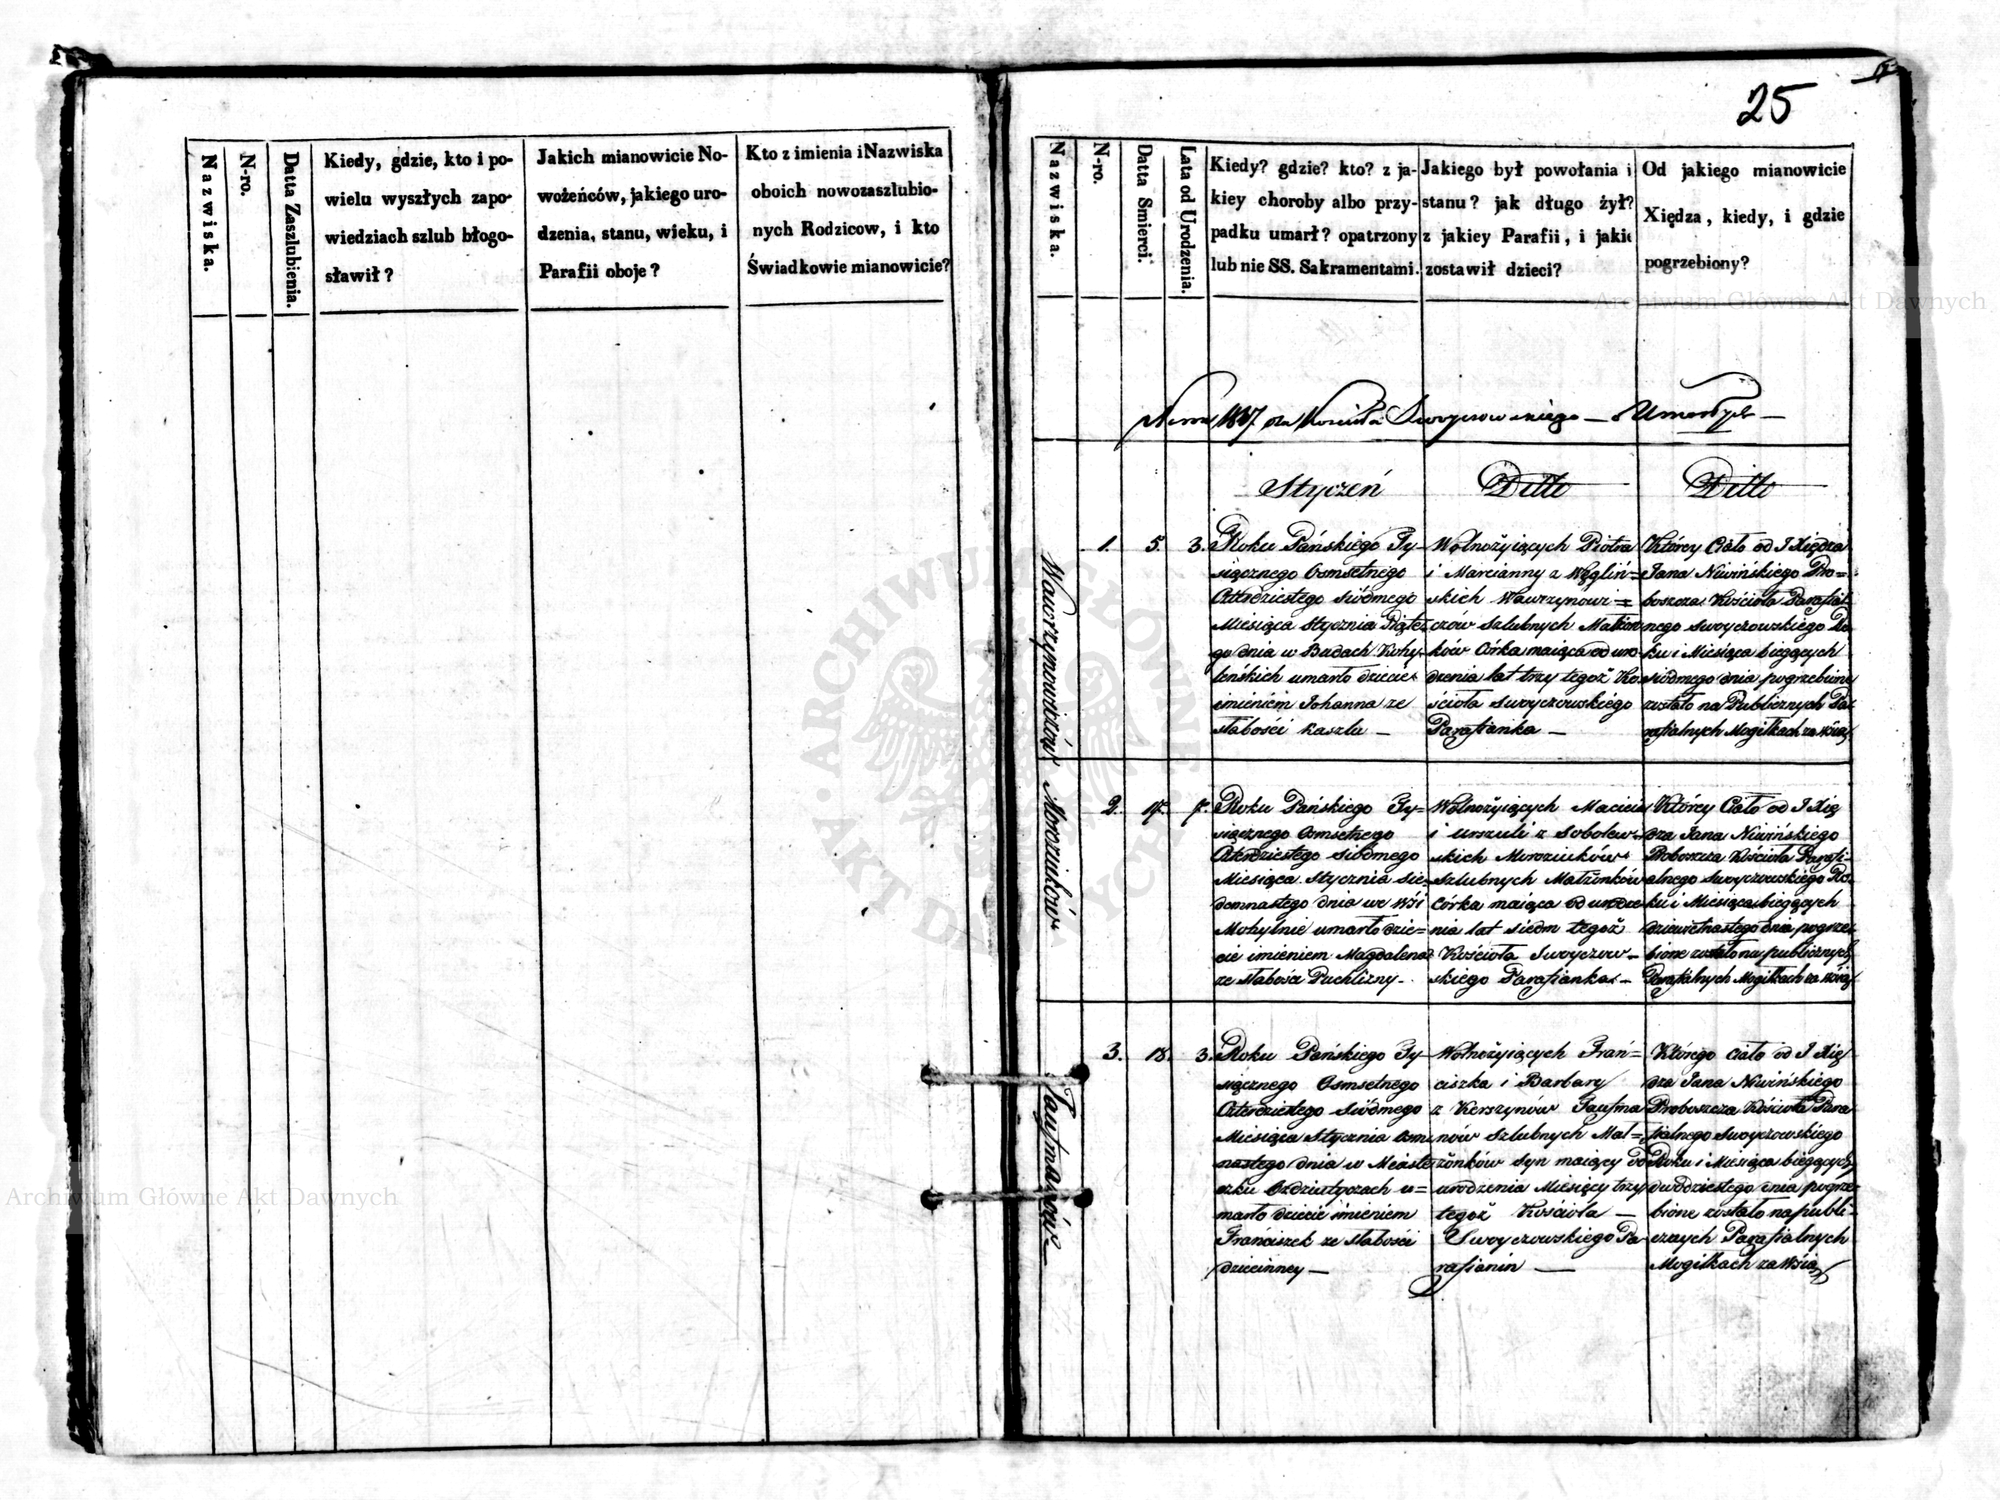 25
Nazwiska.
N-ro.
Datta Zaslubienia.
Kiedy, gdzie, kto i po-
wielu wyszłych zapo-
wiedziach szlub błogo-
sławił?
Jakich mianowicie No-
wożeńców, jakiego uro-
dzenia, stanu, wieku, i
Parafii oboje?
Kto z imienia i Nazwiska
oboich nowozaszlubio-
nych Rodzicow, i kto
Świadkowie mianowicie?
Nazwiska.
N-ro.
Datta Smierci.
Lata od Urodzenia.
Kiedy? gdzie? kto? z ja-
kiey choroby albo przy-
padku umarł? opatrzony
lub nie SS. Sakramentami.
Jakiego był powołania i
stanu? jak długo żył?
z jakiey Parafii, i jakie
zostawił dzieci?
Od jakiego mianowicie
Xiędza, kiedy, i gdzie
pogrzebiony?
1847 Kościoła Swoyczowskiego — Umarłych —
Styczeń
Ditto
Ditto
Wawrzynowiczów
1.
5.
3.
Roku Pańskiego Ty-
siącznego Osmsetnego
Czterdziestego siódmego
Miesiąca Stycznia Piąte-
go dnia w Budach Kohy-
leńskich umarło dziecie
imieniem Johanna ze
słabości kaszlu —
Wolnożyiących Piotra
i Marcianny z Węgliń=
skich Wawrzynowi=
czow szlubnych Małżon
ków Córka maiąca od uro
dzenia lat trzy tegoż Ko
ścioła Swoyczowskiego
Parafianka —
Którey Ciało od J Xiędza
Jana Niwińskiego Pro=
boszcza Kościoła Parafial
nego Swoyczowskiego Ro
ku i Miesiąca bieżących
siódmego dnia pogrzebione
zostało na Publicznych Pa
rafialnych Mogiłkach za wsią
Moroziuków
2.
17.
7.
Roku Pańskiego Ty=
siącznego Osmsetnego
Czterdziestego siódmego
Miesiąca Stycznia sie=
demnastego dnia we Wsi
Mohylnie umarło dzie=
cie imieniem Magdalena
ze słabości Puchliny -
Wolnożyiących Macieia
i Urszuli z Sobolew=
skich Moroziuków
Szlubnych Małżonków
Córka maiąca od urodze
nia lat siedm tegoż
Kościoła Swoyczow-
skiego Parafianka —
Którey Ciało od J Xię
dza Jana Niwińskiego
Proboszcza Kościoła Parafi-
alnego Swoyczowskiego Ro-
ku i Miesiąca bieżących
dziewietnastego dnia pogrze
bione zostało na publicznych
Parafialnych Mogiłkach za wsią
Taufmanów
3.
18.
3.
Roku Pańskiego Ty
siącznego Osmsetnego
Czterdziestego siódmego
Miesiąca Stycznia Osm
nastego dnia w Miaste
czku Ozdziutyczach u=
marło dziecie imieniem
Franciszek ze słabości
dziecinney —
Wolnożyiących Fran=
ciszka i Barbary
z Kerszynów Taufma
nów szlubnych Mał=
żonków syn maiący od
urodzenia Miesięcy trzy
tegoż Kościoła —
Swoyczowskiego Pa
rafianin —
Którego ciało od J Xię
dza Jana Niwińskiego
Proboszcza Kościoła Para
fialnego Swoyczowskiego
Roku i Miesiąca bieżących
dwódziestego dnia pogrze-
bione zostało na publi-
cznych Parafialnych
Mogiłkach za wsią
ARCHIWUM GŁÓWNE AKT DAWNYCH
Archiwum Główne Akt Dawnych
Archiwum Główne Akt Dawnych